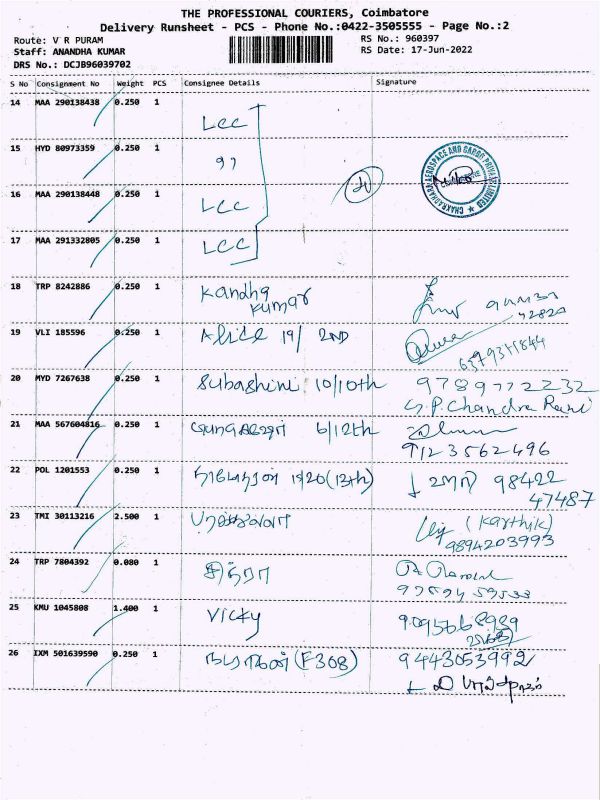 THE PROFESSIONAL COURIERS, Coimbatore
Delivery Runsheet - PCS - Phone No.:0422-3505555 - Page No.:2
Route: V R PURAM
RS No.: 960397
Staff: ANANDHA KUMAR
RS Date: 17-Jun-2022
DRS No.: DCJB96039702
S No Consignment No Weight PCS Consignee Details Signature
14 MAA 290138438 0.250 1 LCC
15 HYD 80973359 0.250 1 "
16 MAA 290138448 0.250 1 LCC
CHAKRADHARA AEROSPACE AND CARGO PRIVATE LIMITED
17 MAA 291332805 0.250 1 LCC
18 TRP 8242886 0.250 1 Kandha
Kumar
42820
19 VLI 185596 0.250 1 Alice 19/ 2ND
20 MYD 7267638 0.250 1 Subashini 10/10th 9789772232
S.P. Chandra Rani
21 MAA 567604816 0.250 1 6/12th
9123562496
22 POL 1201553 0.250 1 (13th) 98422
47487
23 TMI 30113216 2.500 1 (Karthik)
9894203993
24 TRP 7804392 0.080 1 சித்ரா
25 KMU 1045808 1.400 1 Vicky
26 IXM 501639590 0.250 1 (F308) 9443053992